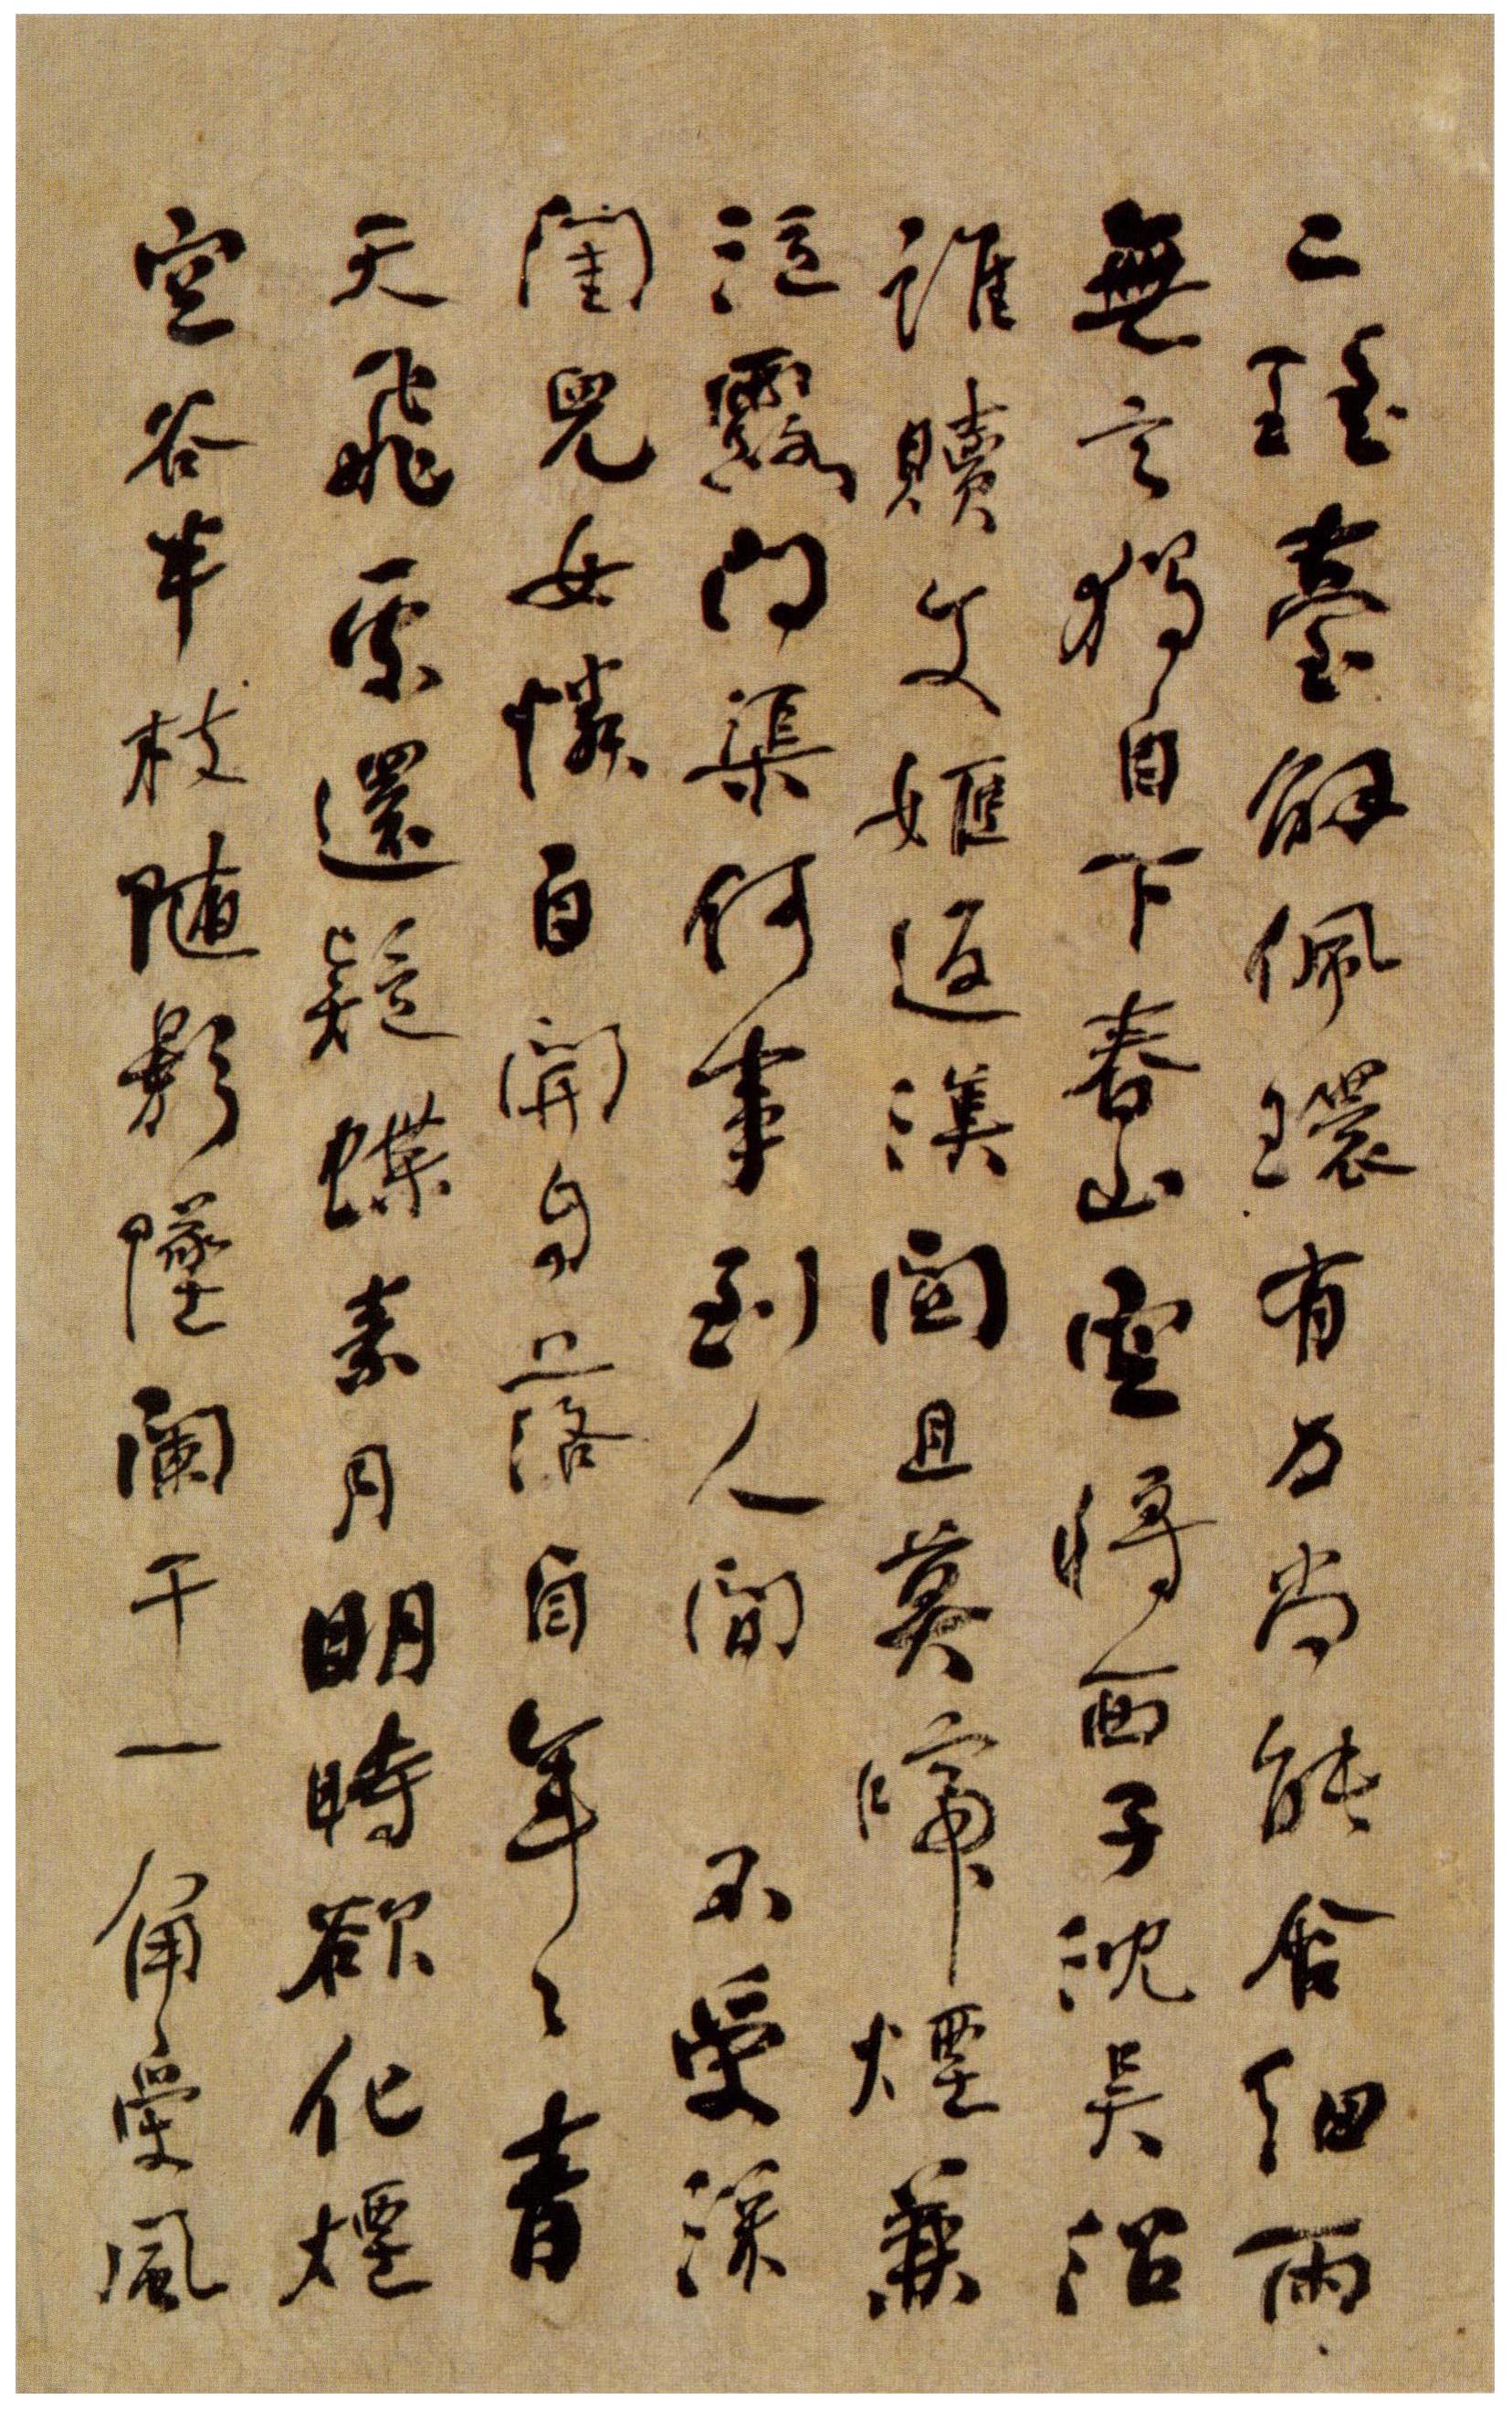 々瑤臺解佩環有力尚能含細雨
無言獨自下春山空將西子沈吳沼
誰贖文姬返漢關且莫啼煙兼
泣露問渠何事到人間 不受深
閨兒女憐自開自落自年々青
天飛處還疑蝶素月明時欲化煙
空谷半枝隨影墜闌干一角受風